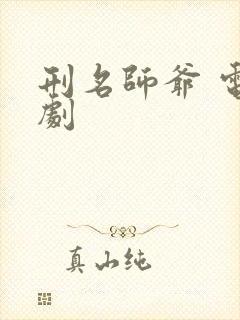 刑名師爺 電
劇
真山纯